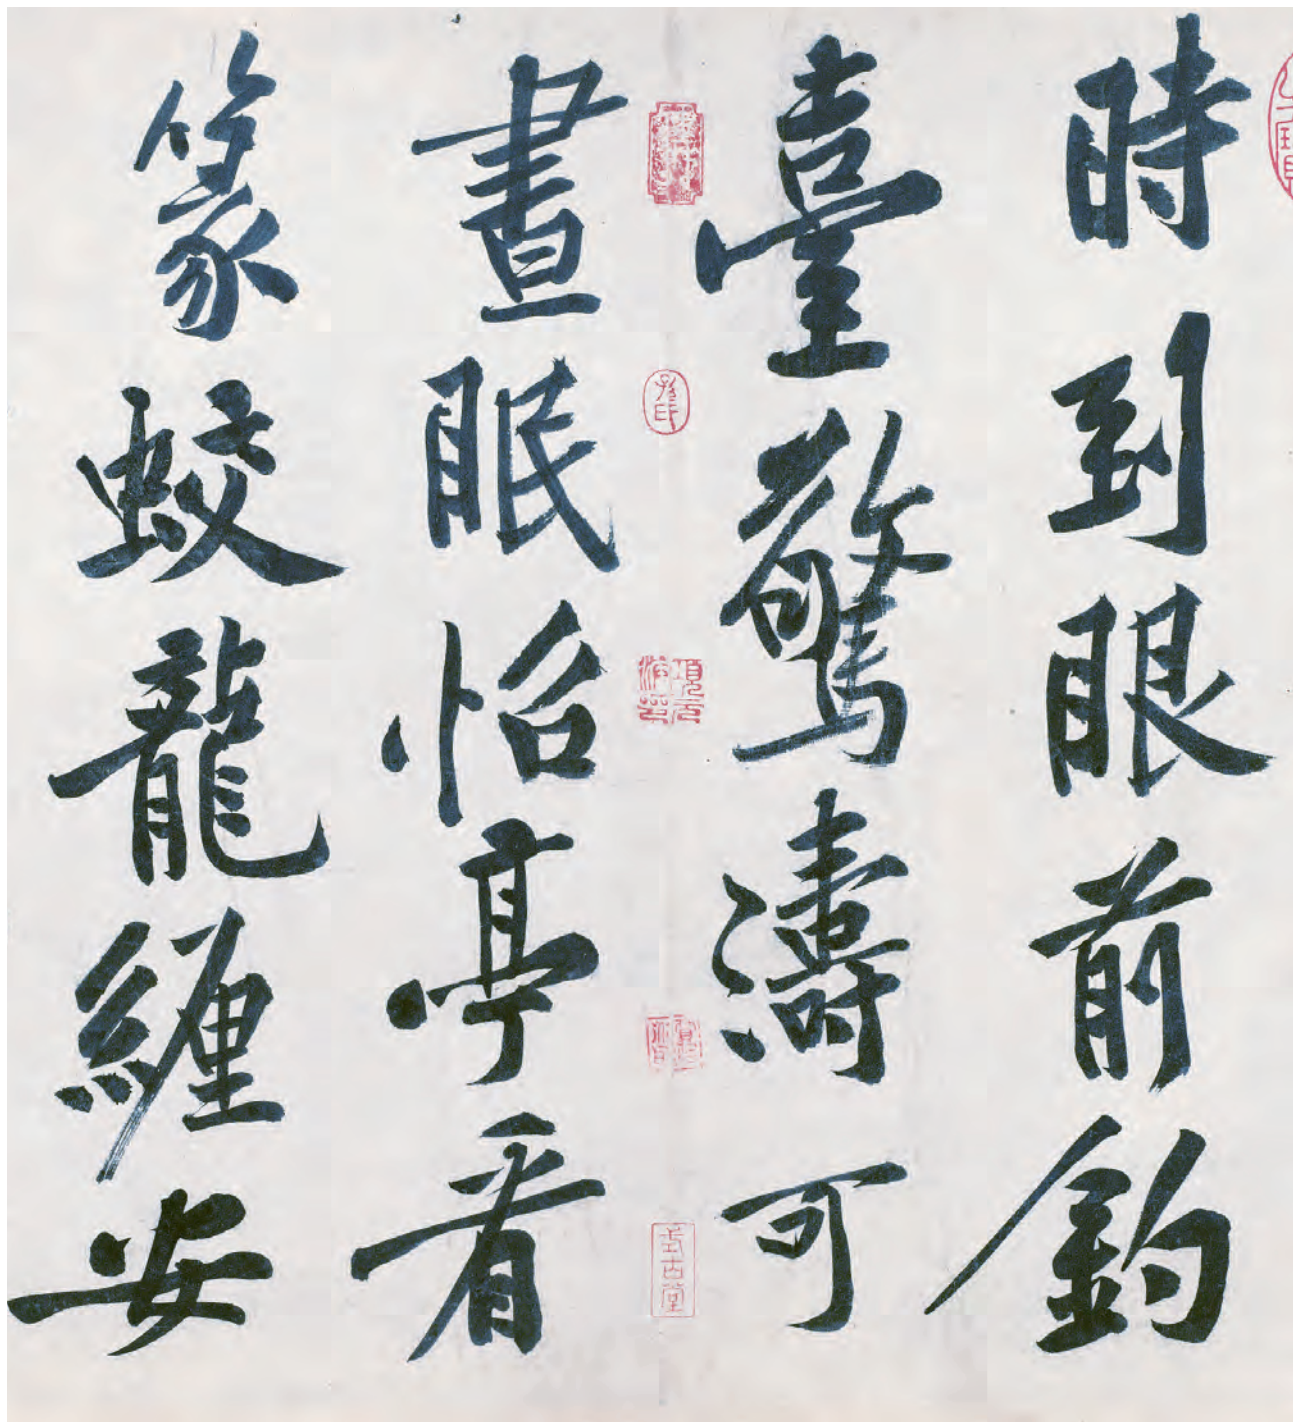 時到眼前釣
臺驚濤可
晝眠怡亭看
篆蛟龍纏安